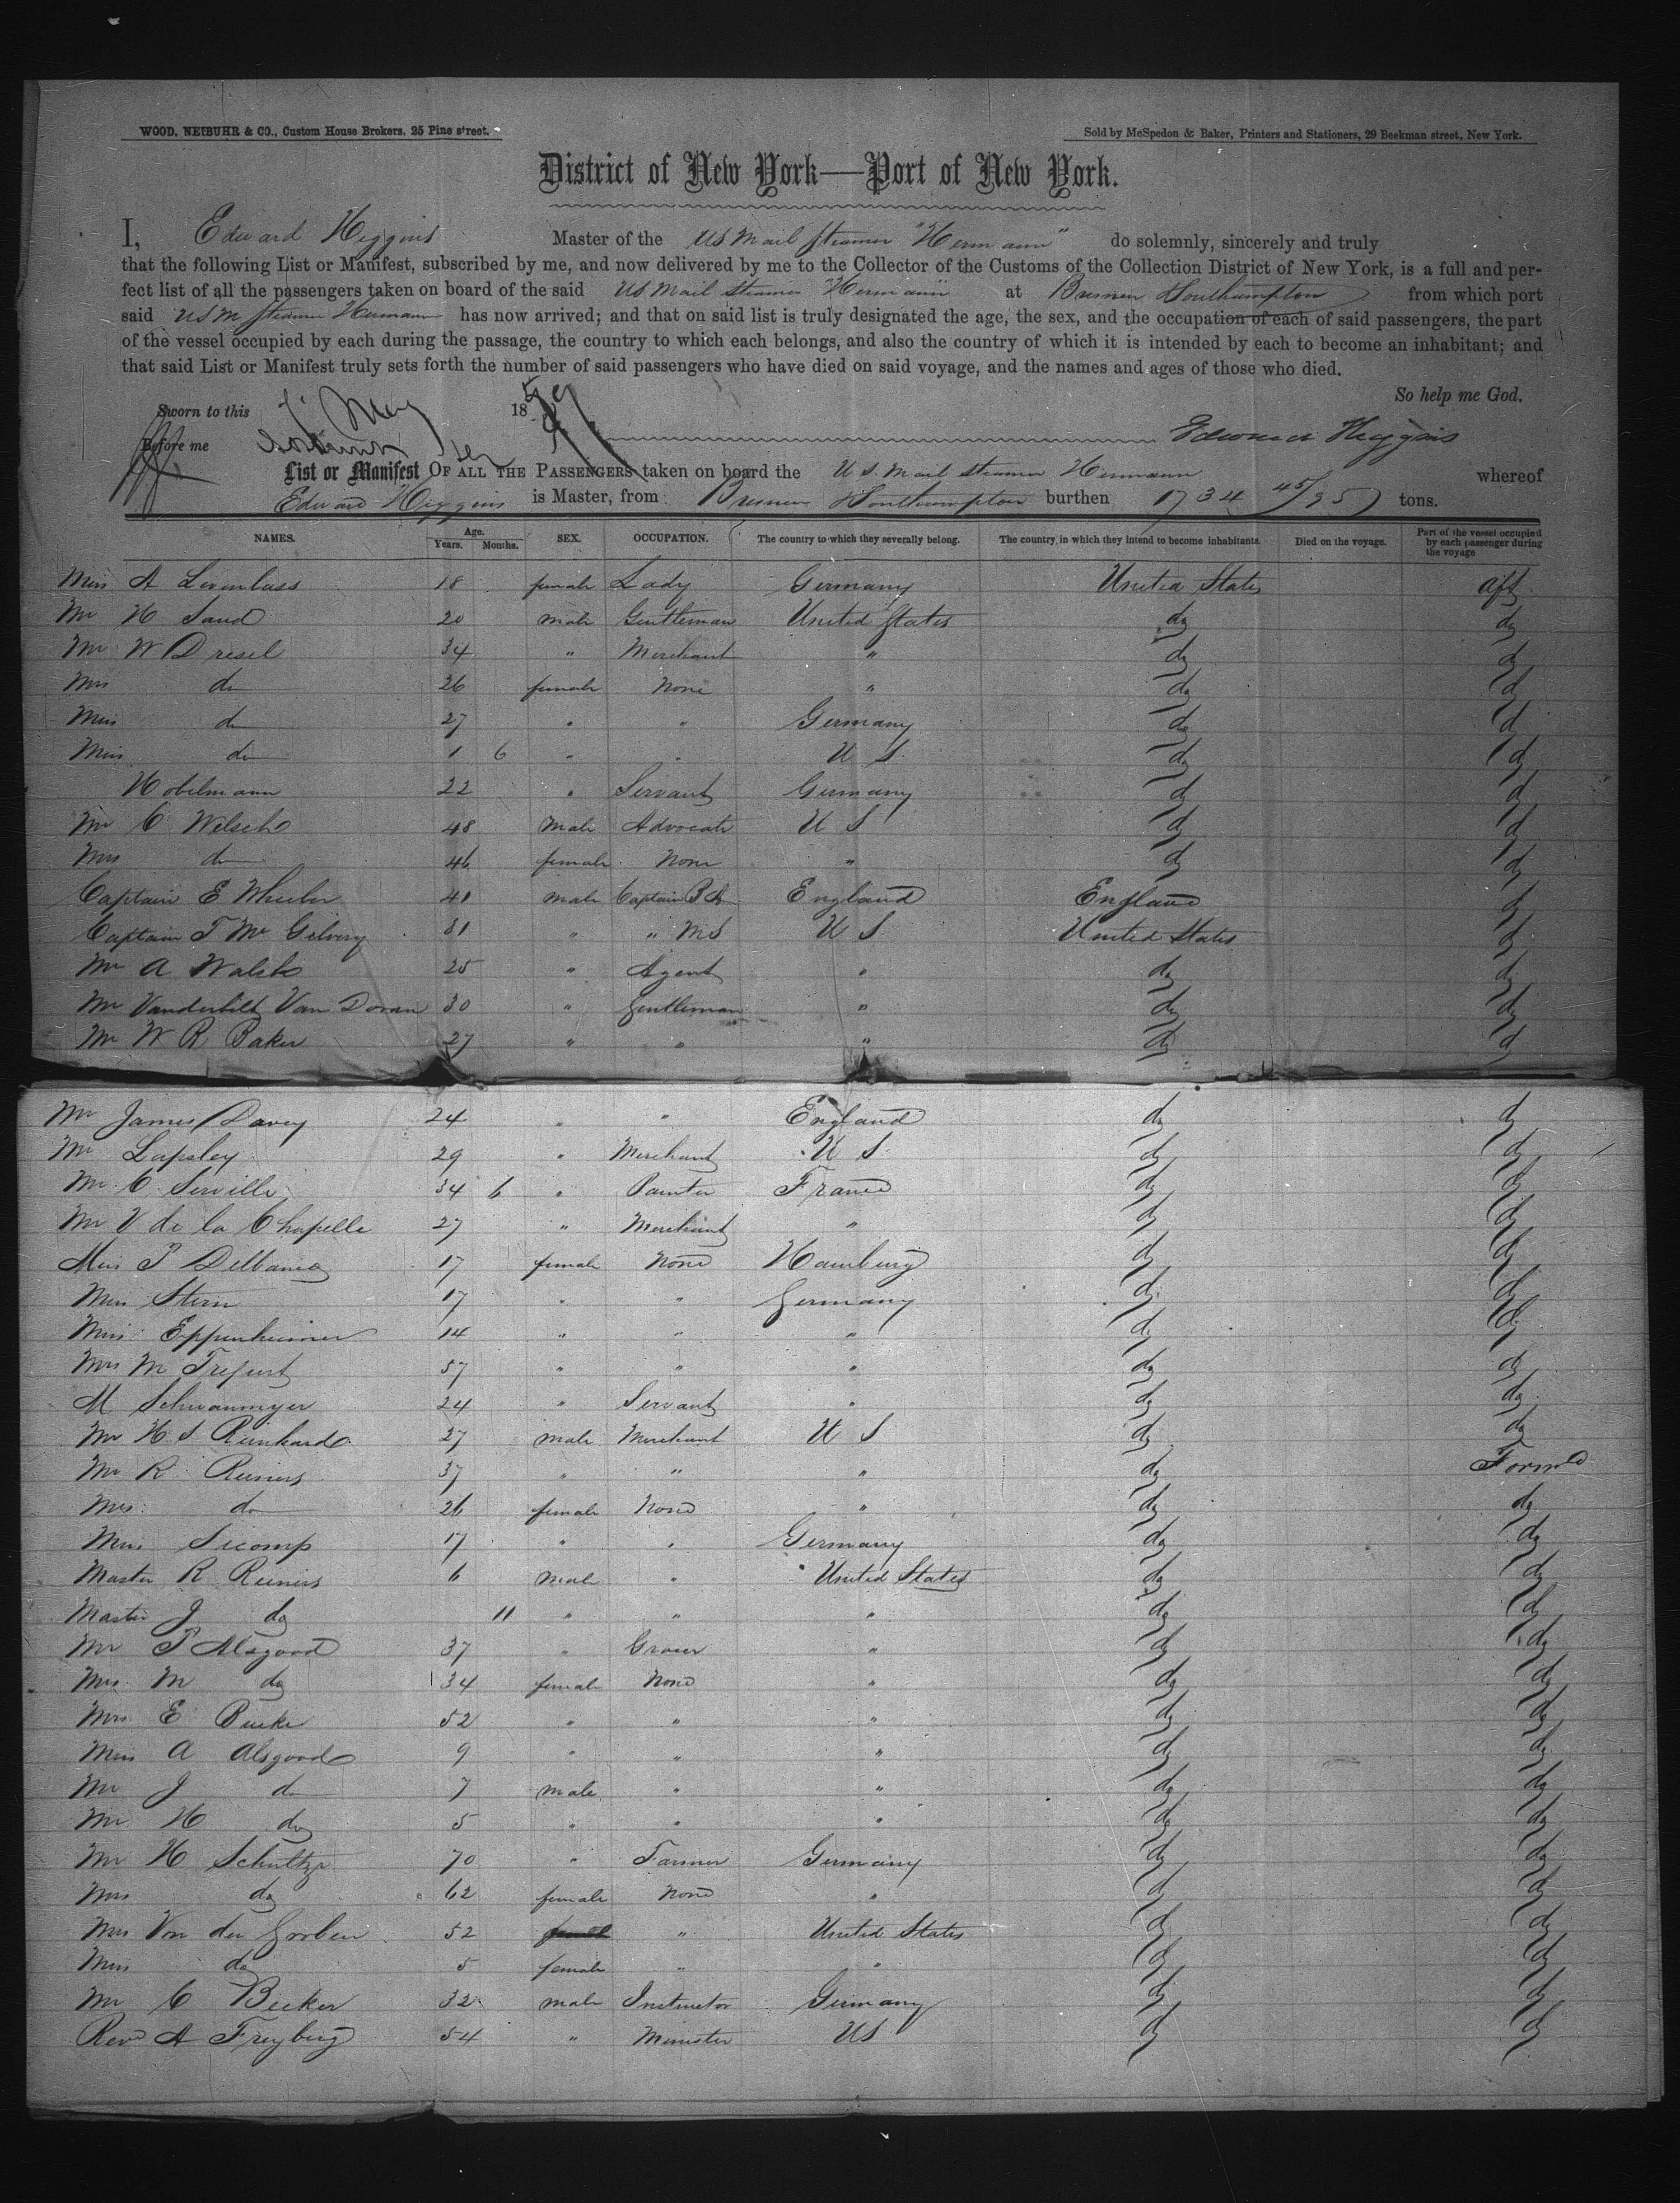 WOOD, NEIBUHR & CO., Custom House Brokers, 25 Pine street.
Sold by McSpedon & Baker, Printers and Stationers, 29 Beekman street, New York.
District of New York—Port of New York.
I, Edward Higgins Master of the US Mail Steamer "Hermann" do solemnly, sincerely and truly
that the following List or Manifest, subscribed by me, and now delivered by me to the Collector of the Customs of the Collection District of New York, is a full and per-
fect list of all the passengers taken on board of the said US Mail Steamer Hermann at Bremen Southampton from which port
said USM Steamer Hermann has now arrived; and that on said list is truly designated the age, the sex, and the occupation of each of said passengers, the part
of the vessel occupied by each during the passage, the country to which each belongs, and also the country of which it is intended by each to become an inhabitant; and
that said List or Manifest truly sets forth the number of said passengers who have died on said voyage, and the names and ages of those who died.
So help me God.
Sworn to this May 18
Before me Edward Higgins
List or Manifest OF ALL THE PASSENGERS taken on board the U S. Mail Steamer Hermann whereof
Edward Higgins is Master, from Bremen Southampton burthen 1734 45/95 tons.
NAMES. Age. Years. Months. SEX. OCCUPATION. The country to which they severally belong. The country in which they intend to become inhabitants. Died on the voyage. Part of the vessel occupied by each passenger during the voyage
Miss A 18 female Lady Germany United States aft
Mr H Sand 20 male Gentleman United States do do
Mr W Dresel 34 " Merchant " do do
Mrs do 26 female None " do do
Miss do 27 " " Germany do do
Miss do 1 6 " " U S do do
Hobelmann 22 " Servant Germany do do
Mr C Welsch 48 Male Advocate U S do do
Mrs do 46 female None " do do
Captain E Wheeler 41 male Captain England England do
Captain T Mc Gilvery 31 " " MS U S United States do
Mr A Walsh 25 " Agent " do do
Mr Vanderbilt Van Doran 30 " Gentleman " do do
Mr W R Baker 27 " " " do do
Mr James Davey 24 " " England do do
Mr Lapsley 29 " Merchant U S do do
Mr C Serville 34 6 " Painter France do do
Mr V de la Chapelle 27 " Merchant " do do
Miss P 17 female None Hamburg do do
Miss Stern 17 " " Germany do do
Miss Eppenheimer 14 " " " do do
Mrs M Trefurt 57 " " " do do
M Schwanmyer 24 " Servant " do do
Mr H. S Reinhard 27 male Merchant U S do do
Mr R Reiners 37 " " " do Forwd
Mrs do 26 female None " do do
Miss Sicomp 17 " " Germany do do
Master R Reiners 6 male " United States do do
Master J do 11 " " " do do
Mr P Alsgood 37 " Grocer " do do
Mrs M do 34 female None " do do
Mrs E 52 " " " do do
Miss A Alsgood 9 " " " do do
Mr J do 7 male " " do do
Mr H do 5 " " " do do
Mr H Schultze 70 " Farmer Germany do do
Mrs do 62 female None " do do
Mrs Von der Groben 52 " United States do do
Miss do 5 female " " do do
Mr C Becker 32 male Instructor Germany do do
Revd A Freyberg 54 " Minister US do do